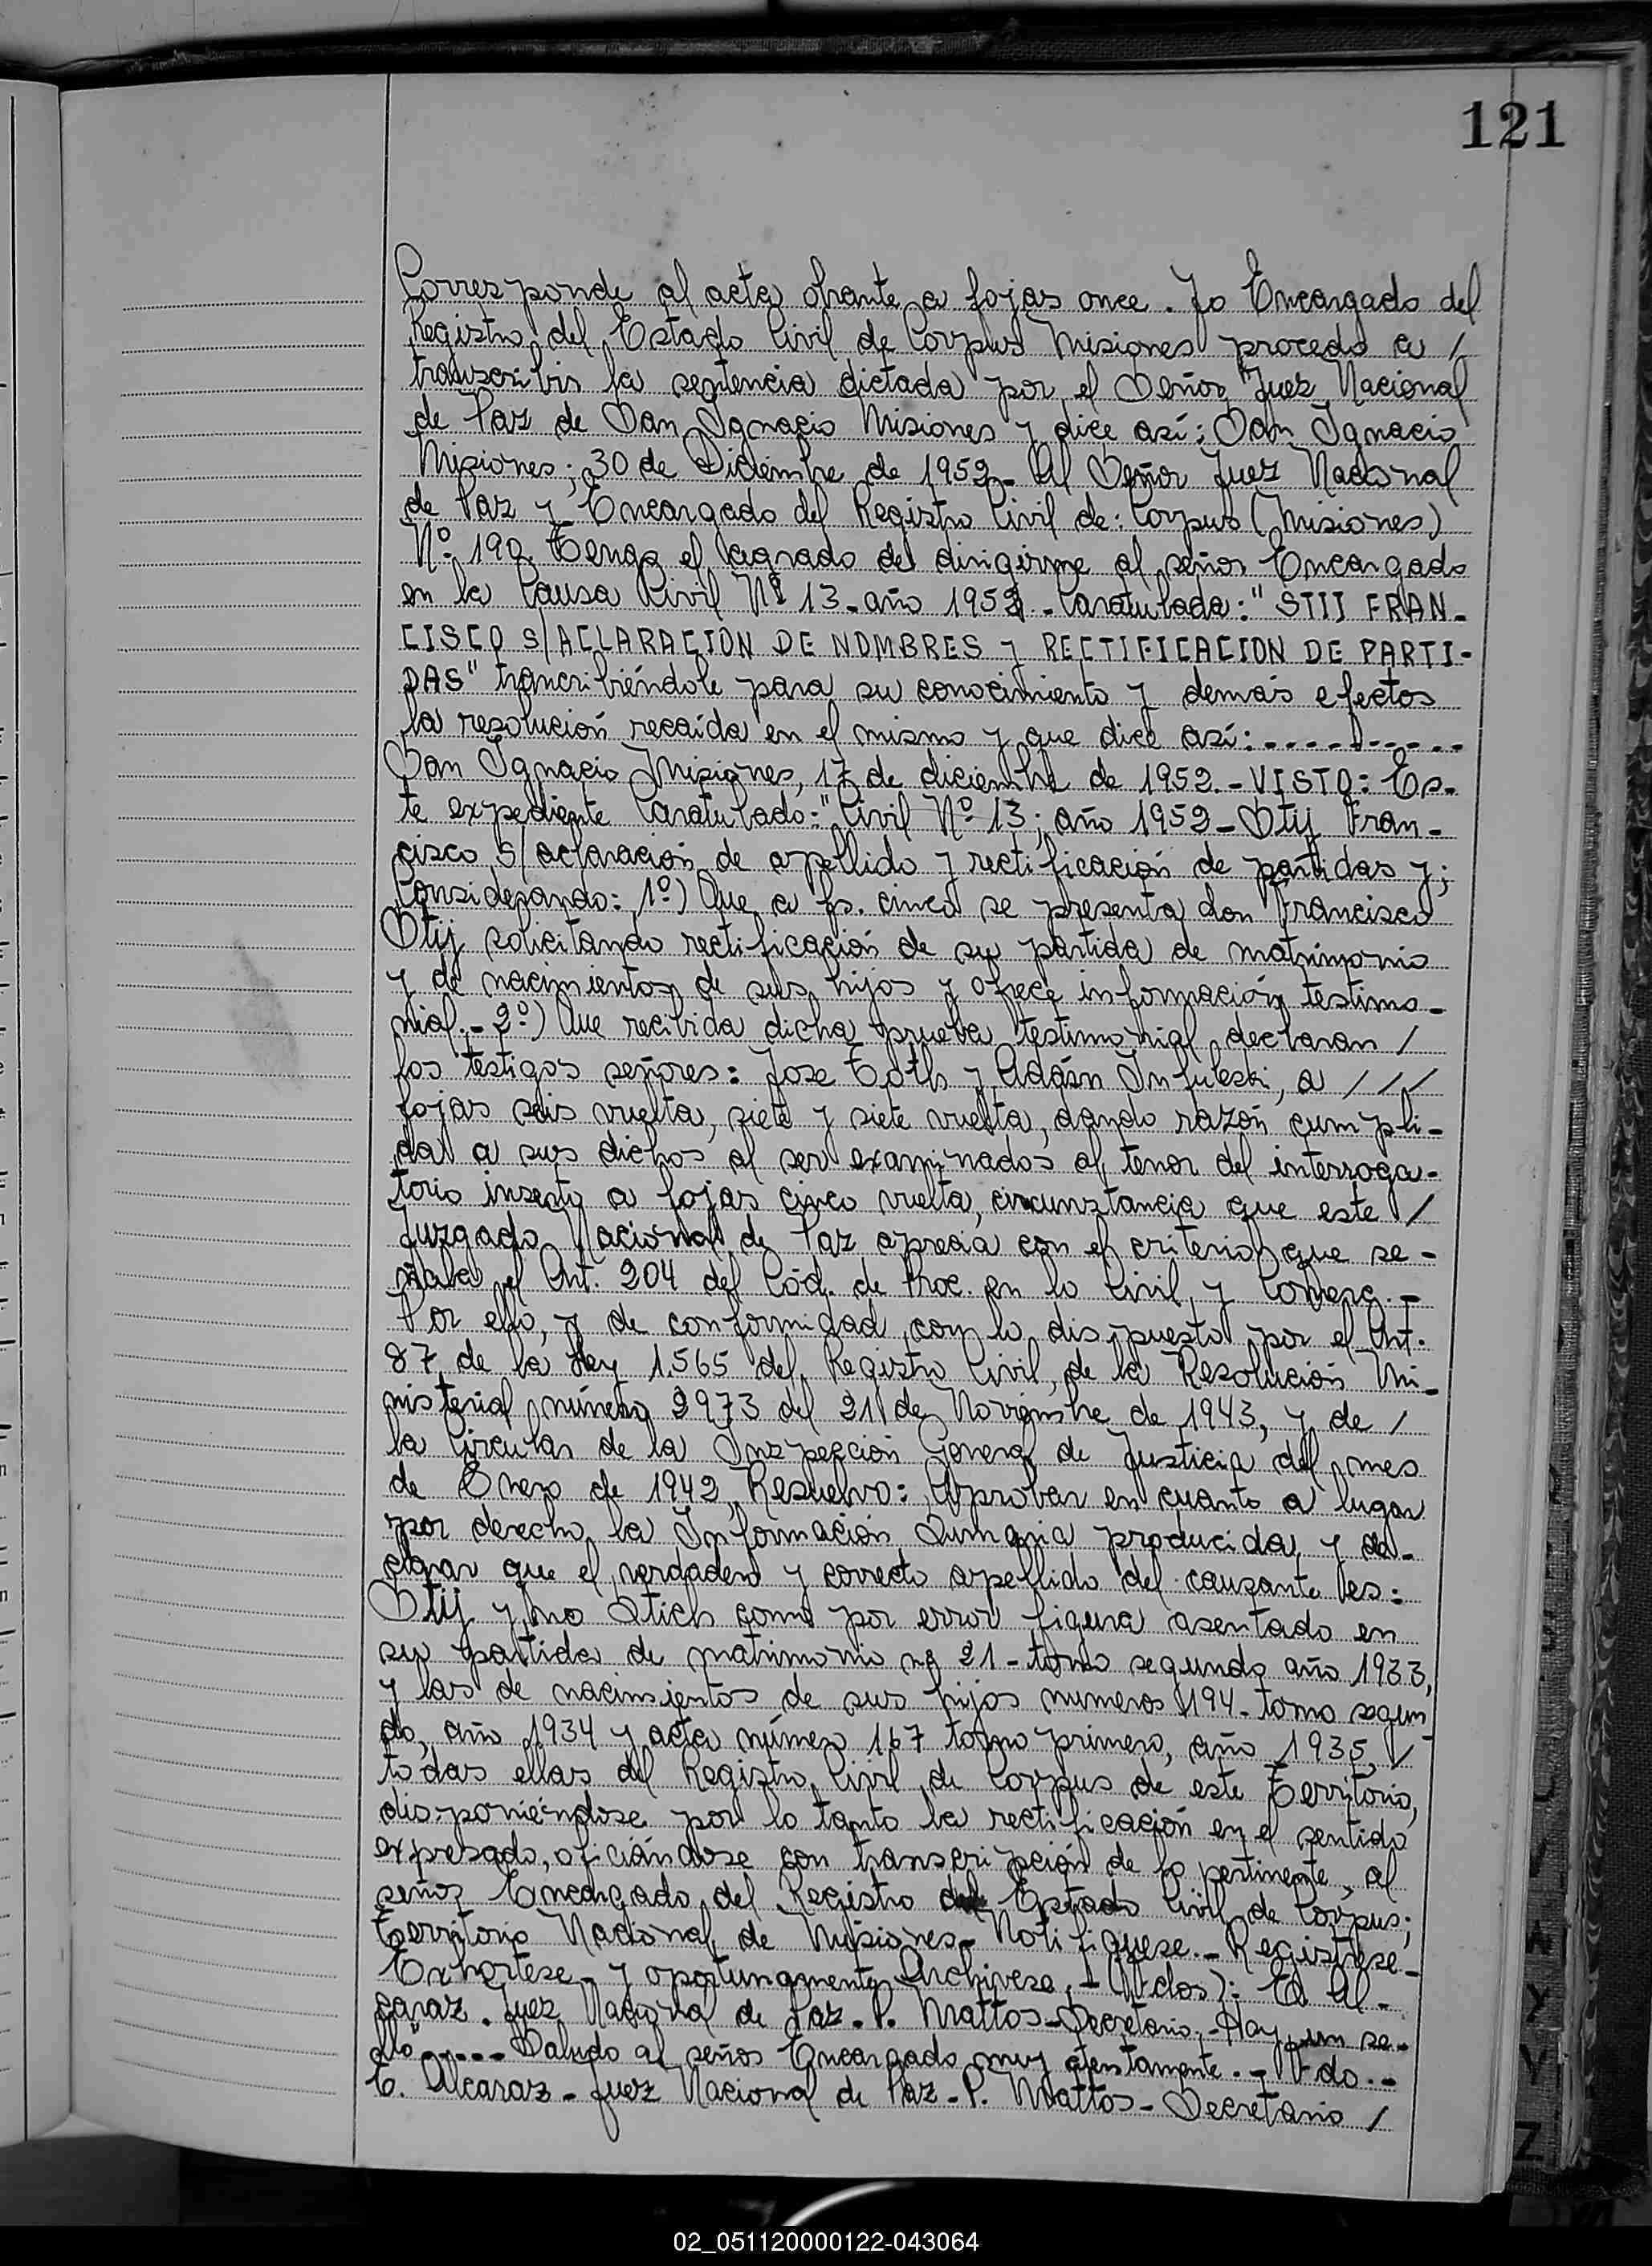 121
Corresponde al acta obrante a fojas once. Yo Encargado del
Registro del Estado Civil de Corpus Misiones procedo a /
transcribir la sentencia dictada por el Señor Juez Nacional
de Paz de San Ignacio Misiones y dice así: San Ignacio
Misiones; 30 de Diciembre de 1952.- Al Señor Juez Nacional
de Paz y Encargado del Registro Civil de: Corpus (Misiones)
Nº 190. Tengo el agrado de dirigirme al señor Encargado
en la Causa Civil Nº 13- año 1952 - Caratulada: "STIJ FRAN-
CISCO S/ACLARACION DE NOMBRES y RECTIFICACION DE PARTI-
DAS" trancribiéndole para su conocimiento y demás efectos
la resolución recaída en el mismo y que dice así: - - - - - - - - - -
San Ignacio Misiones, 17 de diciembre de 1952.- VISTO: Es-
te expediente Caratulado: "Civil Nº 13; año 1952 - Stij Fran-
cisco S/ aclaración de apellido y rectificación de partidas y;
Considerando: 1º) Que a fs. cinco se presenta don Francisco
Stij solicitando rectificación de su partida de matrimonio
y de nacimientos de sus hijos y ofrece información testimo-
nial.- 2º) Que recibida dicha prueba testimonial declaran /
los testigos señores: Jose Toth y Adám Infuleski, a ///
fojas seis vuelta, siete y siete vuelta, dando razón cumpli-
da a sus dichos al ser examinados al tenor del interroga-
torio inserto a fojas cinco vuelta, circunstancia que este /
Juzgado Nacional de Paz aprecia con el criterio que se-
ñala el Art. 204 del Cód. de Proc. en lo Civil y Comerc.-
Por ello, y de conformidad con lo dispuesto por el Art.
87 de la Ley 1.565 del Registro Civil, de la Resolución Mi-
nisterial número 2973 del 21 de Noviembre de 1943, y de /
la Circular de la Inspección General de Justicia del mes
de Enero de 1942, Resuelvo: Aprobar en cuanto a lugar
por derecho la Información Sumaria producida y de-
clarar que el verdadero y correcto apellido del causante es:
Stij y no Stich como por error figura asentado en
su partida de matrimonio nº 21- tomo segundo año 1933,
y las de nacimientos de sus hijos numeros 194- tomo segun
do, año 1934 y acta número 167 tomo primero, año 1935, /
todas ellas del Registro Civil de Corpus de este Territorio,
disponiéndose por lo tanto la rectificación en el sentido
expresado, oficiándose con transcripción de lo pertinente, al
señor Encargado del Registro del Estado Civil de Corpus;
Territorio Nacional de Misiones.- Notifiquese.- Registrese.-
Exhortese.- y oportunamente Archivese.- (Fdos): E. Al-
caraz. Juez Nacional de Paz.- P. Mattos- Secretario.- Hay un se-
llo".- - - - Saludo al señor Encargado muy atentamente.- Fdo.-
E. Alcaraz - Juez Nacional de Paz - P. Mattos - Secretario /
02_051120000122-043064